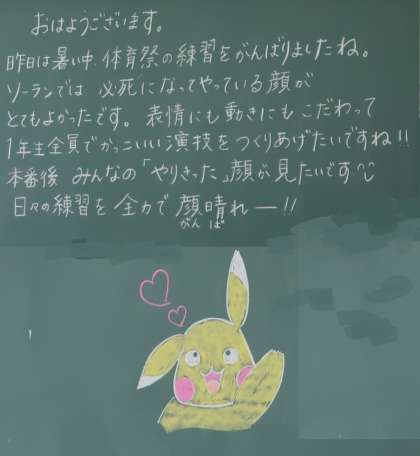 おはようございます。
昨日は暑い中、体育祭の練習をがんばりましたね。
ソーランでは 必死になってやっている顔が
とてもよかったです。表情にも動きにもこだわって
1年生全員でかっこいい演技をつくりあげたいですね!!
本番後 みんなの「やりきった」顔が見たいです
日々の練習を全力で 顔晴れー!!
がん ば